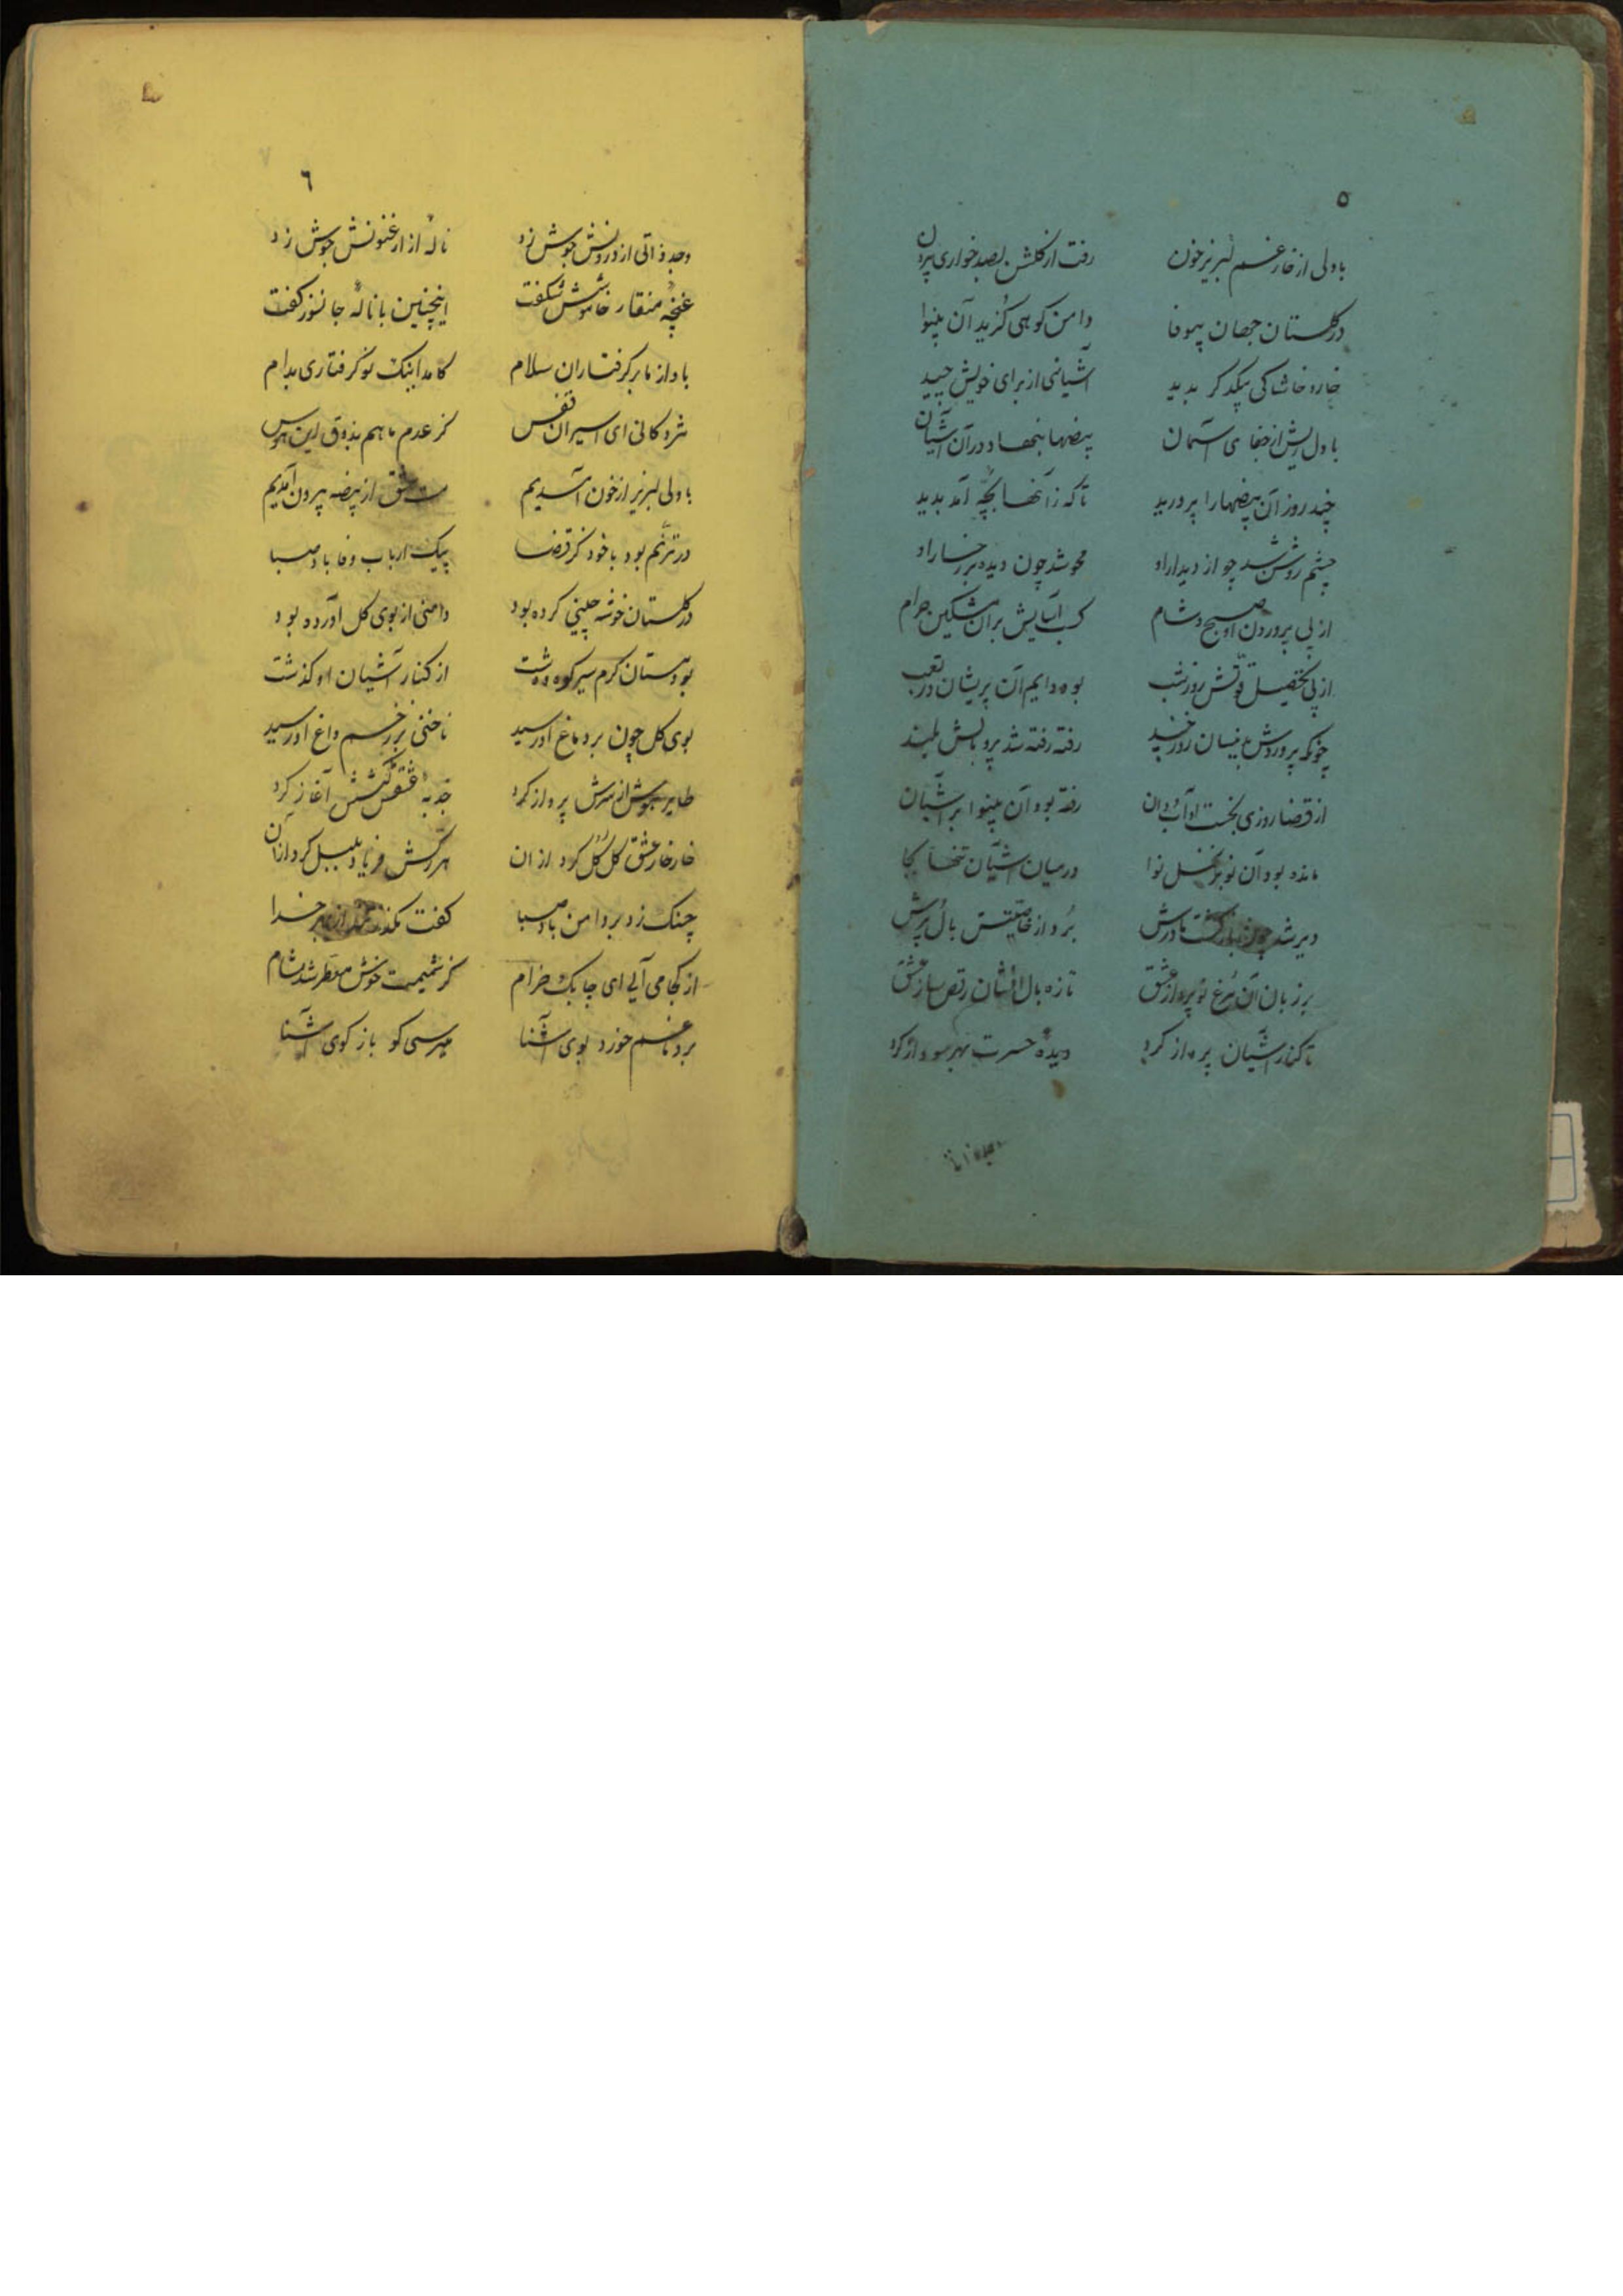 ۵
بادلی از خار غم لبریز خون رفت از گلشن بصد خواری برون
در گلستان جهان بیوفا دامن کوهی گزید آن بینوا
خار و خاشاکی بیکدیگر بدید آشیانی از برای خویش چید
با دل ریش از جفای آسمان بیضها بنهاد در آن آشیان
چند روز آن بیضها را پرورید تا که زآنها بچهٔ آمد پدید
چشم روشن شد چو از دیدار او محو شد چون دیده بر رخسار او
از پی پروردن او صبح و شام کسب آسایش بر آن مسکین حرام
از پی تحصیل قوتش روز و شب بود دایم آن پریشان در تعب
چونکه پروردش بدینسان روز چند رفته رفته شد پر و بالش بلند
از قضا روزی بجست آب و دان رفته بود آن بینوا بر آشیان
مانده بود آن نوبر نخل نوا در میان آشیان تنها بجا
دیر شد چون بازگشت مادرش برد از خاطر بال پرش
بر زبان آن مرغ نو پرواز عشق تازه بال افشان رقص ساز عشق
تا کنار آشیان پرواز کرد دیدهٔ حسرت بهر سو باز کرد
۶
وجد ذاتی از درونش جوش زد نالهٔ از ارغنونش جوش زد
غنچهٔ منقار خاموشش شکفت اینچنین با نالهٔ جانسوز گفت
باد از ما بر گرفتاران سلام کامد اینک نو گرفتاری بدام
مژدگانی ای اسیران قفس کز عدم ما هم بذوق این هوس
با دلی لبریز از خون آمدیم مست عشق از بیضه بیرون آمدیم
در ترنم بود با خود کز قضا پیک ارباب وفا باد صبا
در گلستان خوشه چینی کرده بود دامنی از بوی گل آورده بود
بود مستان گرم سیر کوه و دشت از کنار آشیان او گذشت
بوی گل چون بر دماغ او رسید ناخنی بر زخم داغ او رسید
طایر هوش از سرش پرواز کرد جذبهٔ عشقش کشش آغاز کرد
خار خار عشق گل گل کرد از آن هر رگش فریاد بلبل کرد از آن
چنگ زد بر دامن باد صبا گفت مگذر تند از بهر خدا
از کجا می آیی ای چابک خرام کز شمیمت خوش معطر شد مشام
بر دماغم خورد بوی آشنا میرسی گو باز کوی آشنا